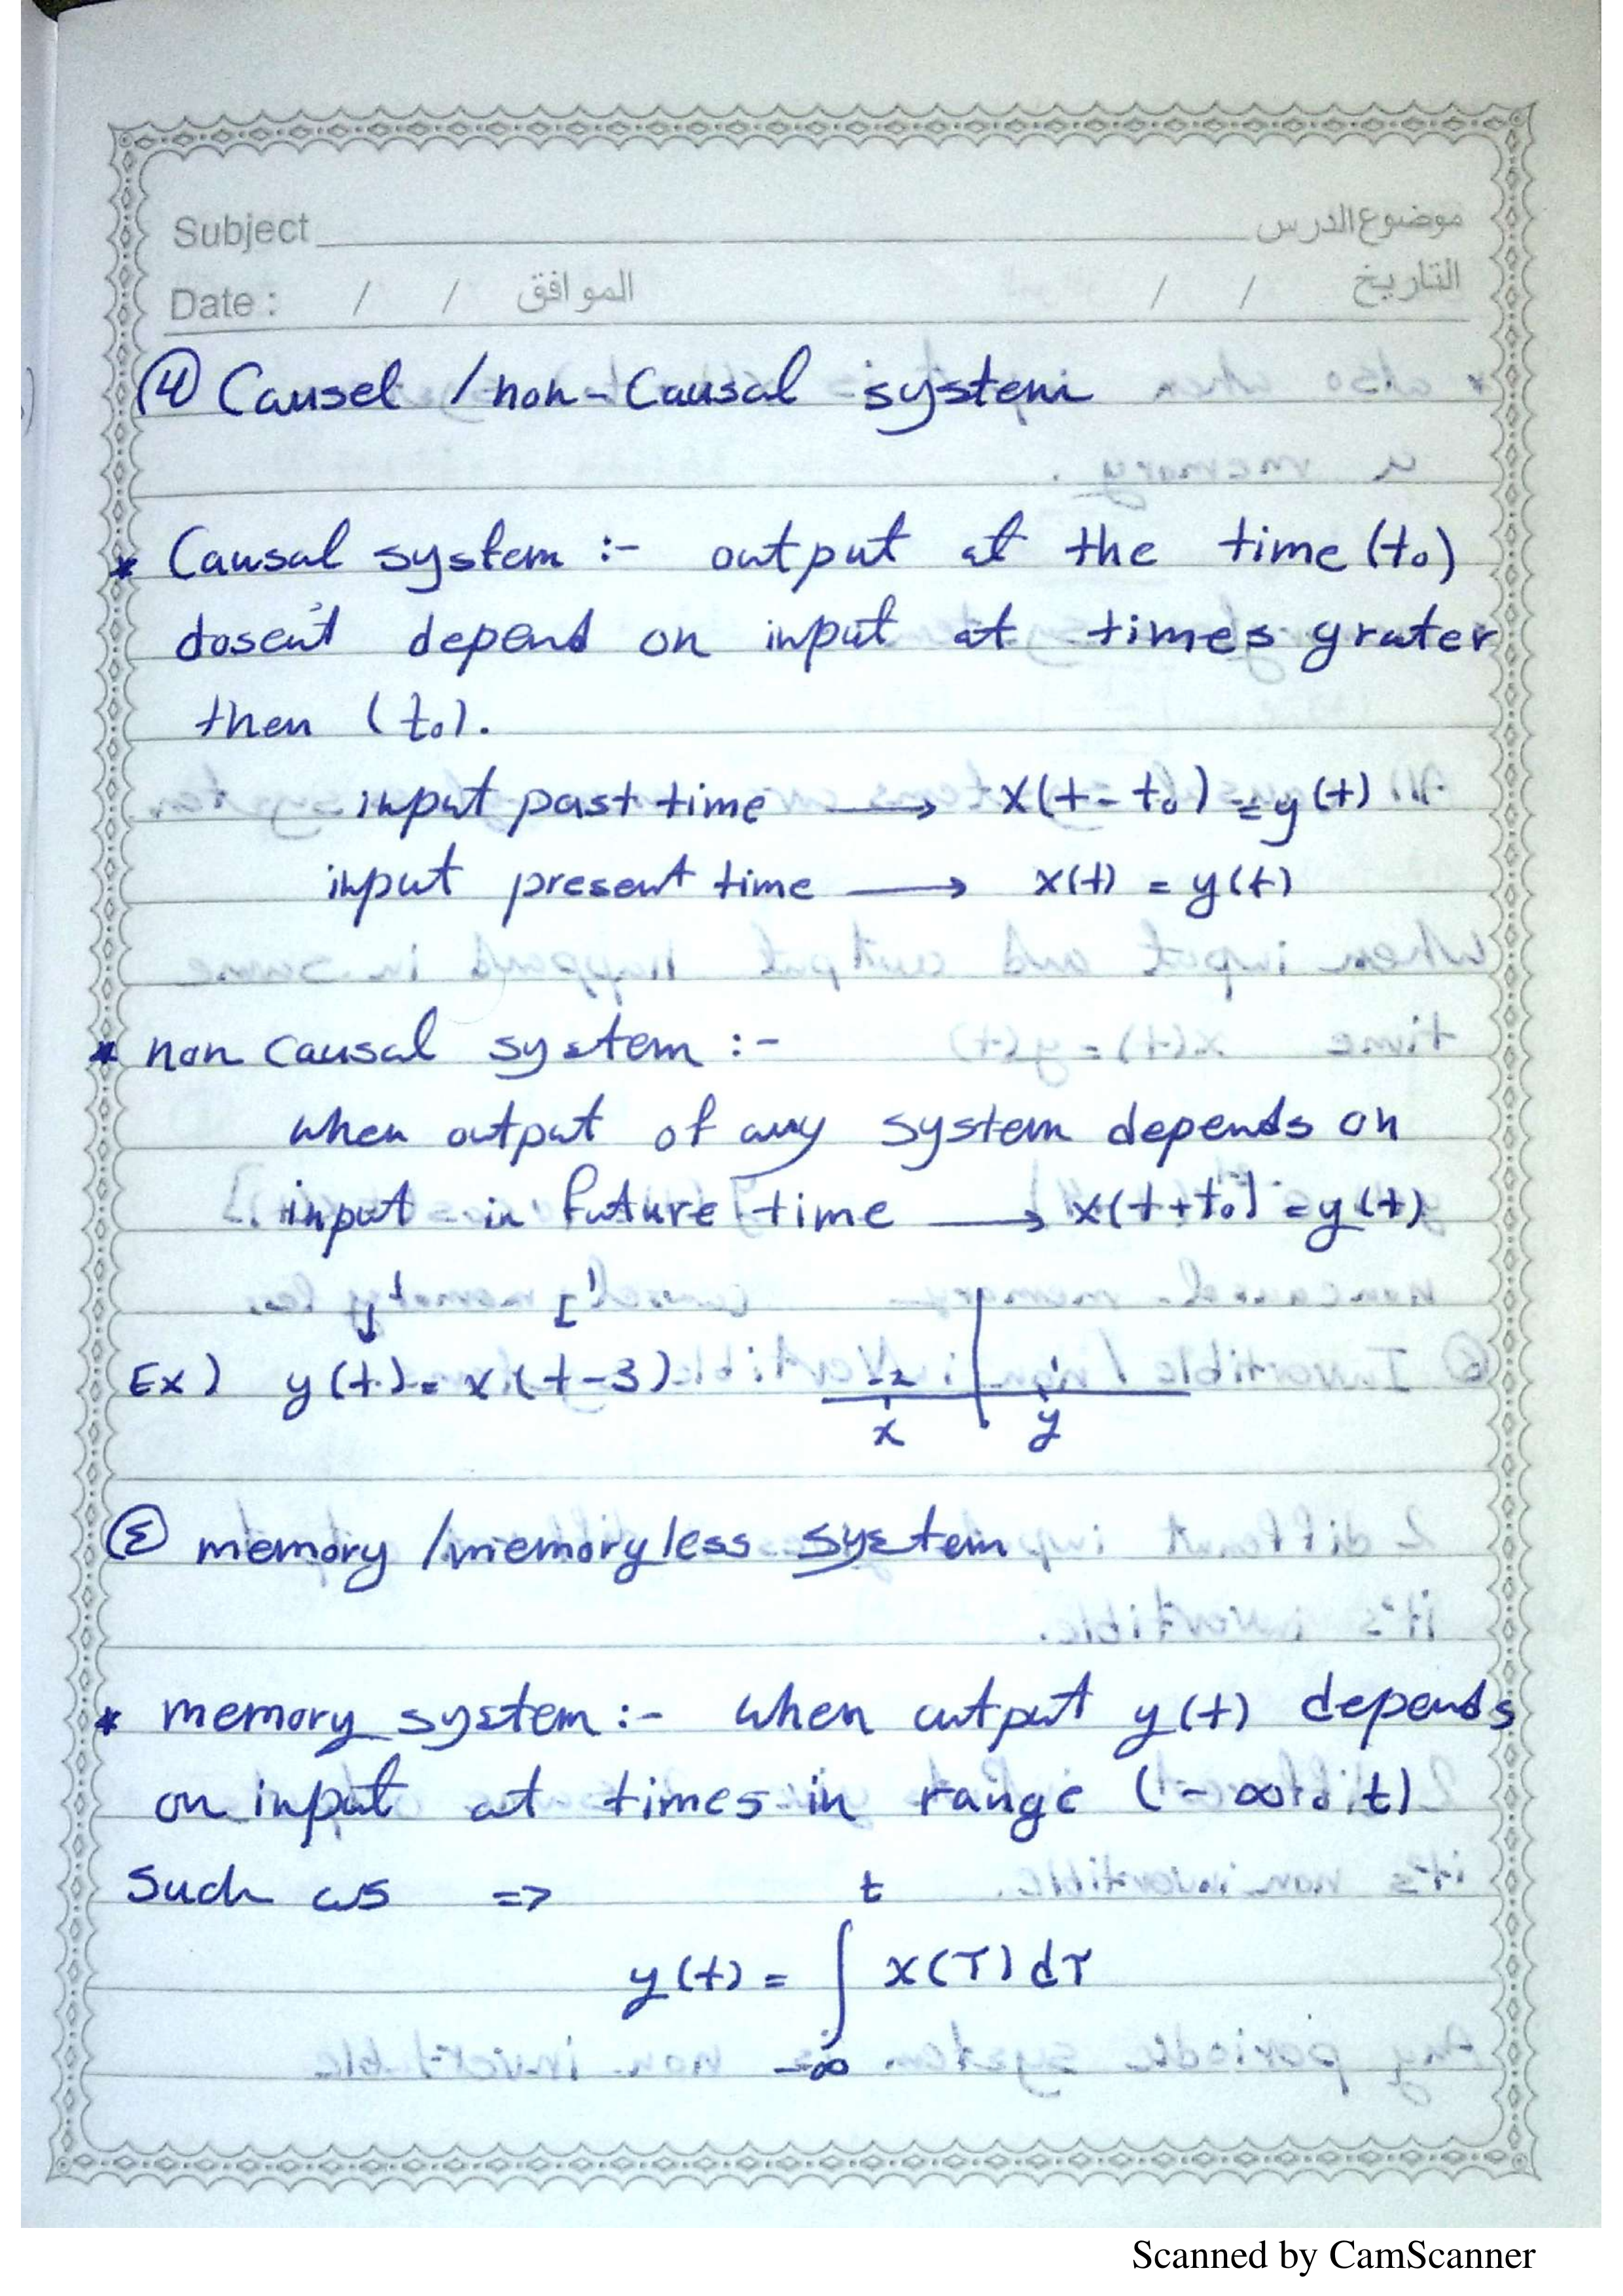 Subject موضوع الدرس
Date : / / الموافق / / التاريخ
④ Causel / non-Causal system
* Causal system :- output at the time (t₀)
dosen't depend on input at times grater
then (t₀).
input past time ⟶ x(t-t₀) = y(t)
input present time ⟶ x(t) = y(t)
* non causal system :-
when output of any system depends on
input in future time ⟶ x(t+t₀) = y(t)
1 1
Ex) y(t) = x(t-3) -2 1
x y
memory / memoryless system
* memory system :- when output y(t) depends
on input at times in range (-∞ to t)
Such as => t
y(t) = ∫ x(τ) dτ
-∞
Scanned by CamScanner